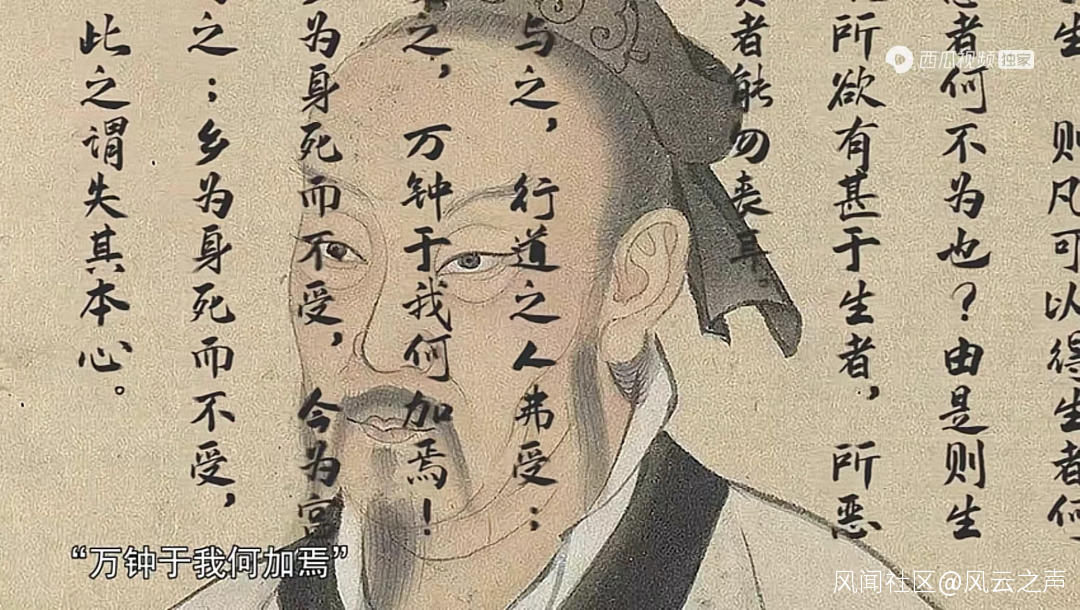 西瓜视频 独家
生 则凡可以得生者何
者何不为也?由是则生
所欲有甚于生者, 所恶
者能勿丧耳。
与之,行道之人弗受;
之, 万钟于我何加焉!
为身死而不受, 今为宫
之;乡为身死而不受,
此之谓失其本心。
“万钟于我何加焉”
风闻社区@风云之声